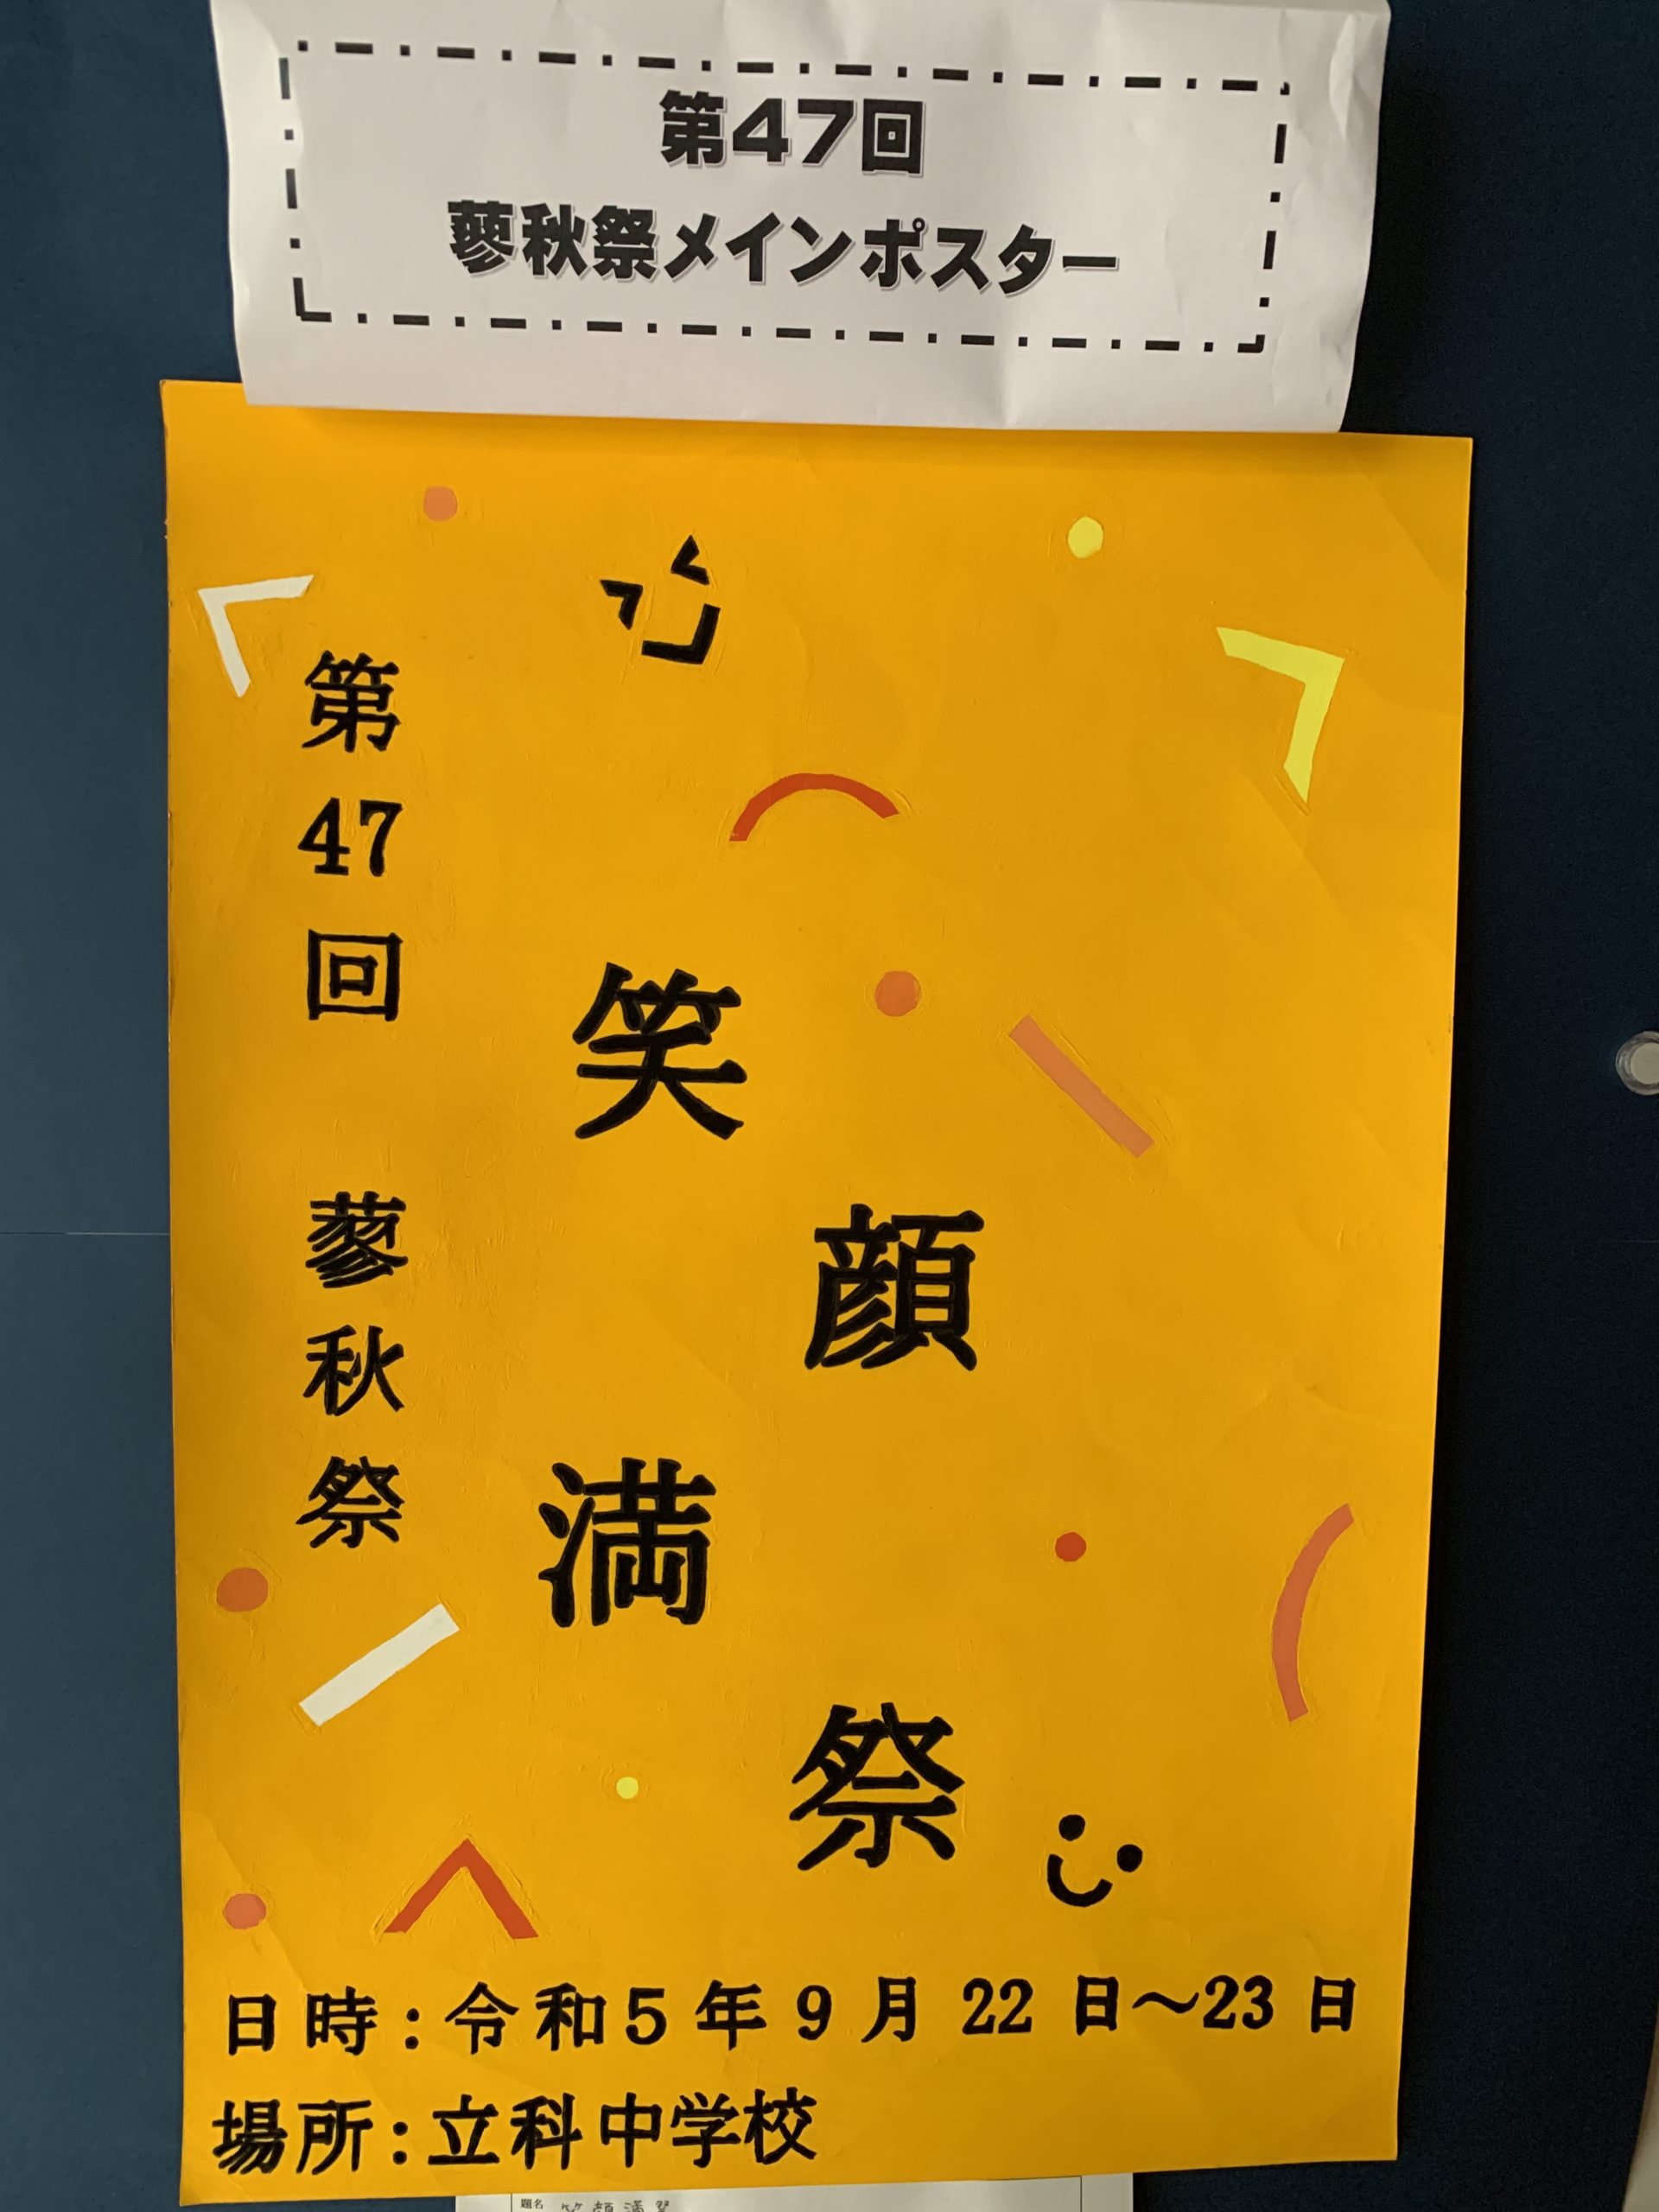 第47回
蓼秋祭メインポスター
第47回 蓼秋祭
笑顔満祭
日時:令和5年9月22日〜23日
場所:立科中学校
題名 笑顔満祭